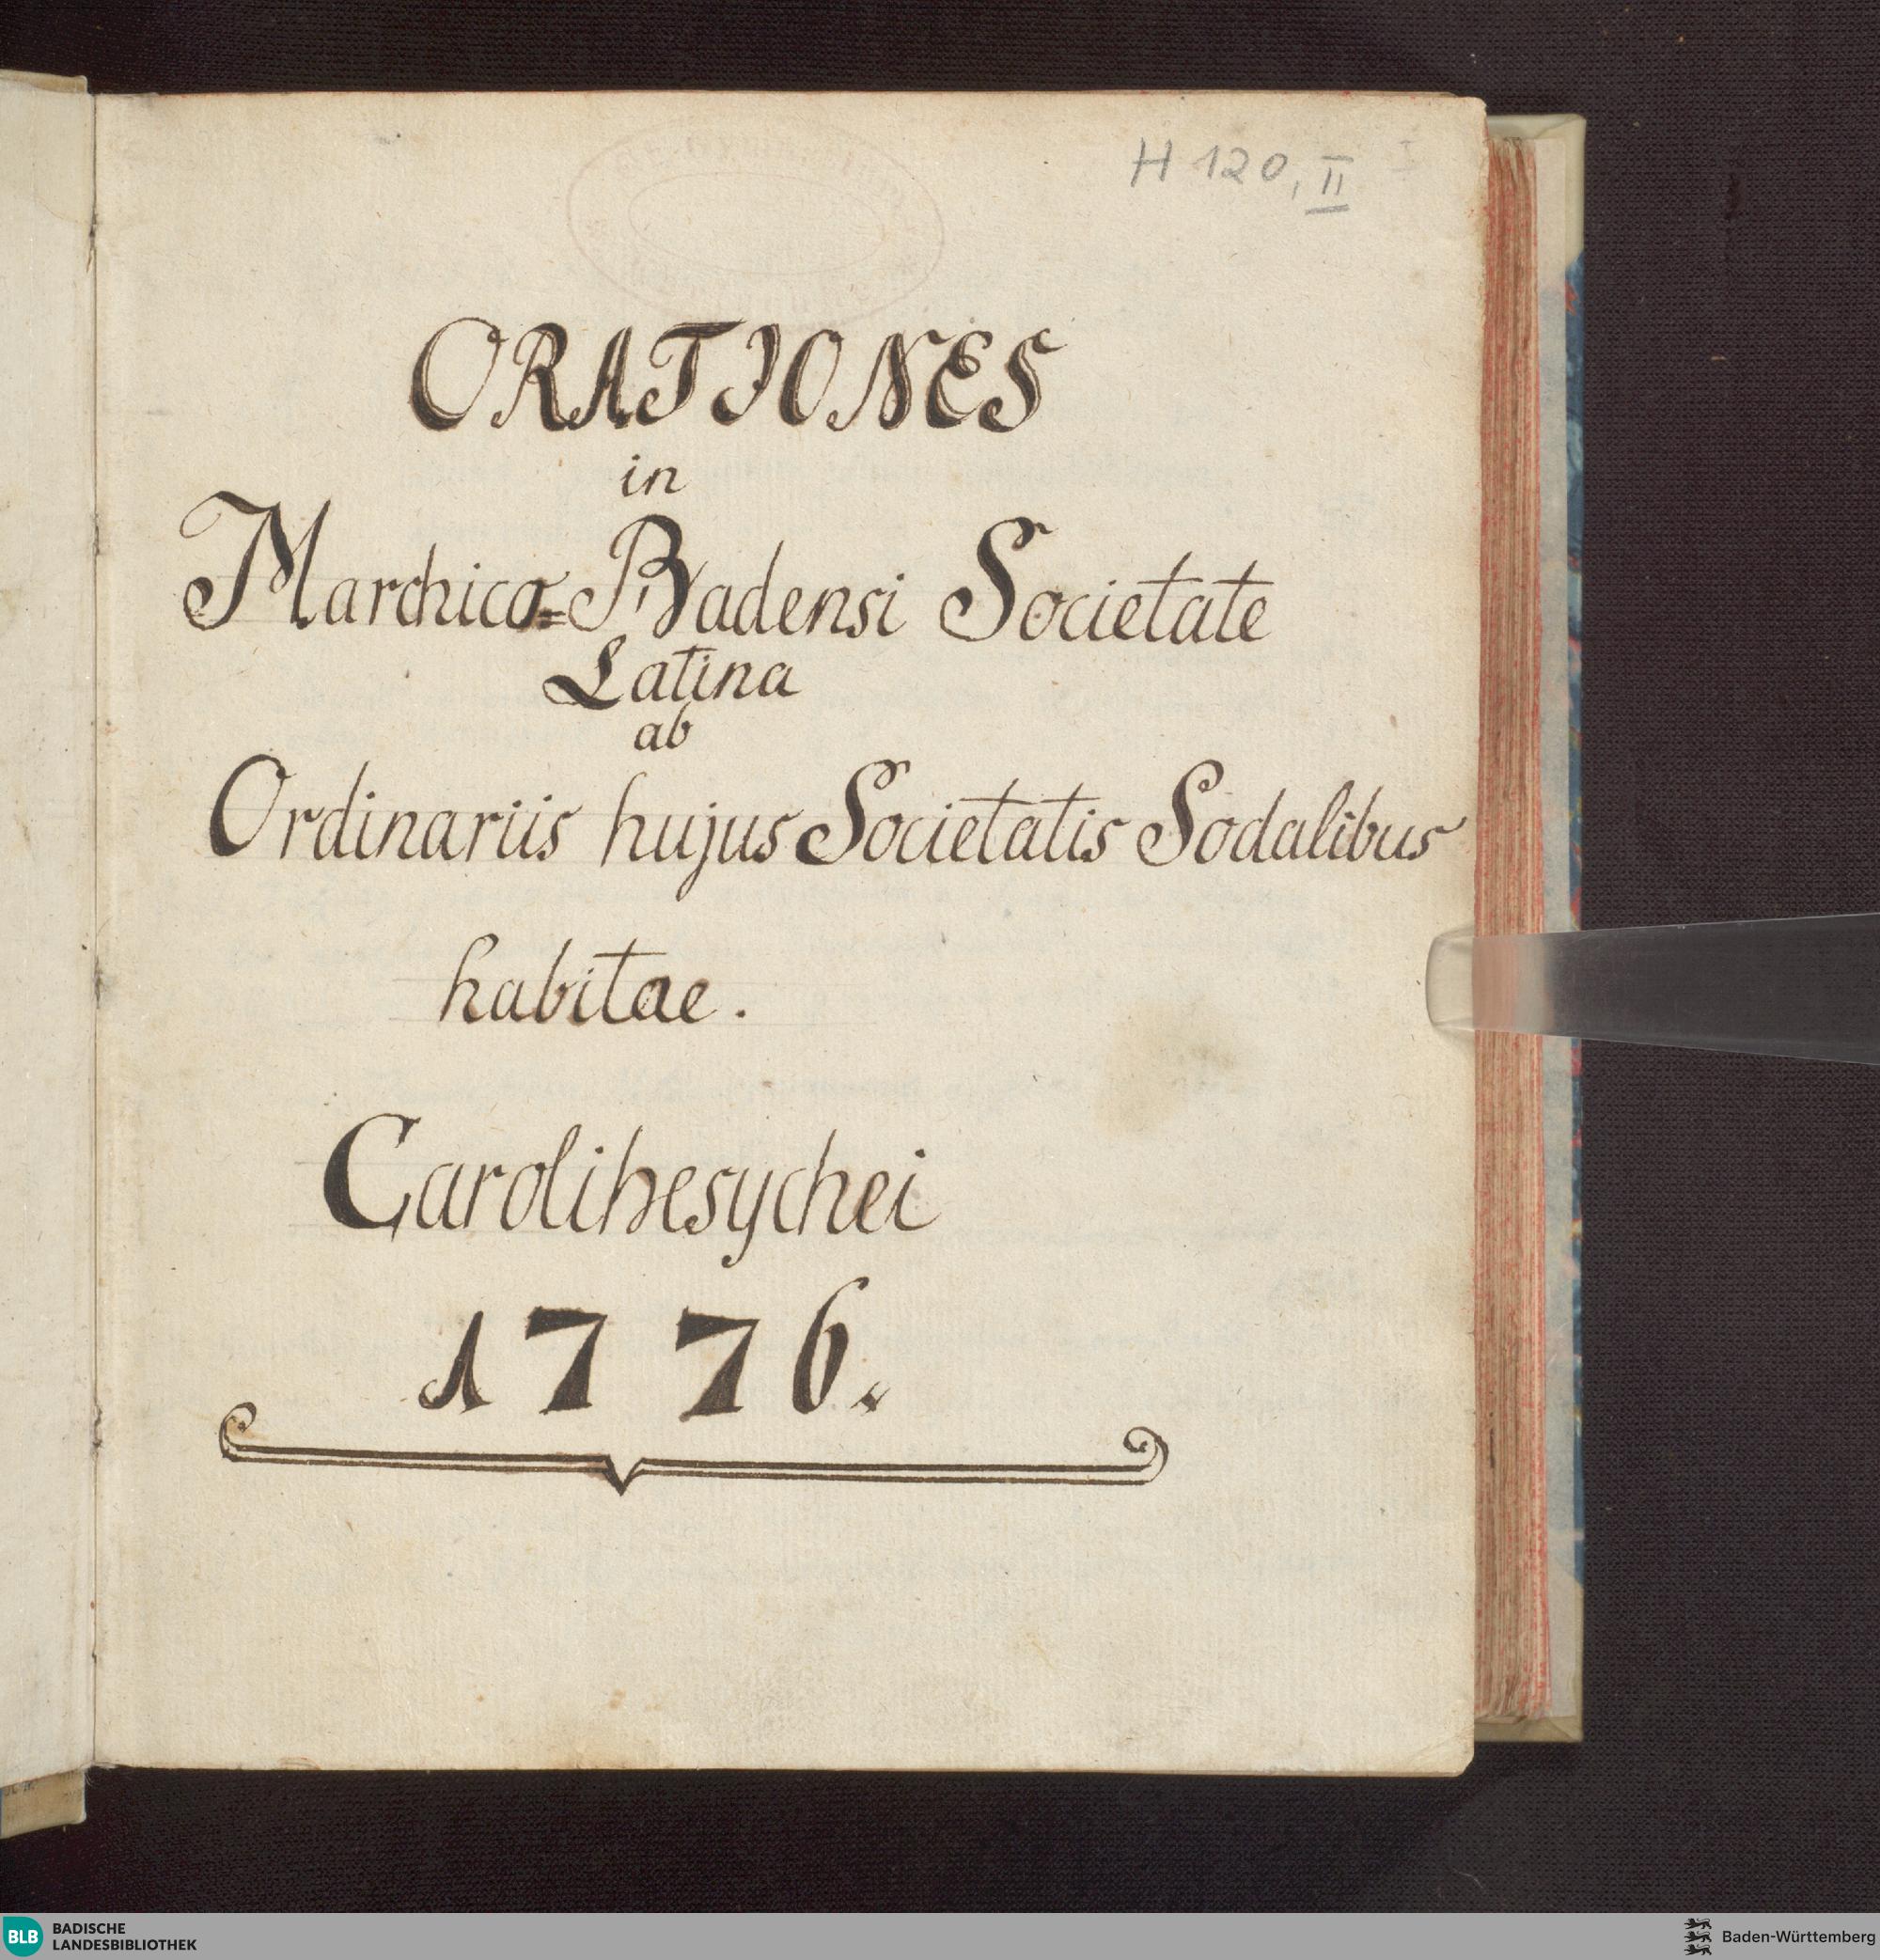 H 120, II
ORATIONES
in
Marchico=Badensi Societate
Latina
ab
Ordinariis hujus Societatis Sodalibus
habitae.
Carolihesychei
1776.
BLB BADISCHE
LANDESBIBLIOTHEK
Baden-Württemberg